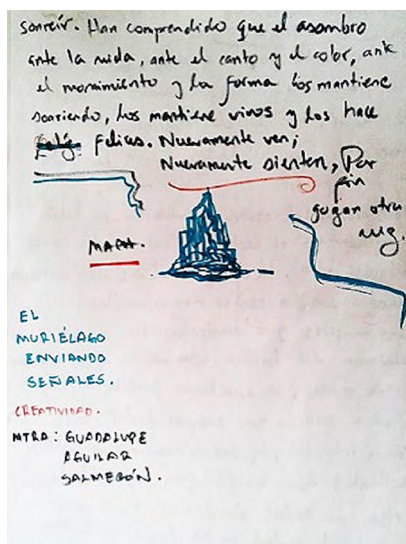 sonreír. Han comprendido que el asombro
ante la vida, ante el canto y el color, ante
el movimiento y la forma los mantiene
sonriendo, los mantiene vivos y los hace
felices. Nuevamente ven;
Nuevamente sienten, Por
fin
juegan otra
vez.
MAPA.
EL
MURIÉLAGO
ENVIANDO
SEÑALES.
CREATIVIDAD.
MTRA: GUADALUPE
AGUILAR
SALMERÓN.